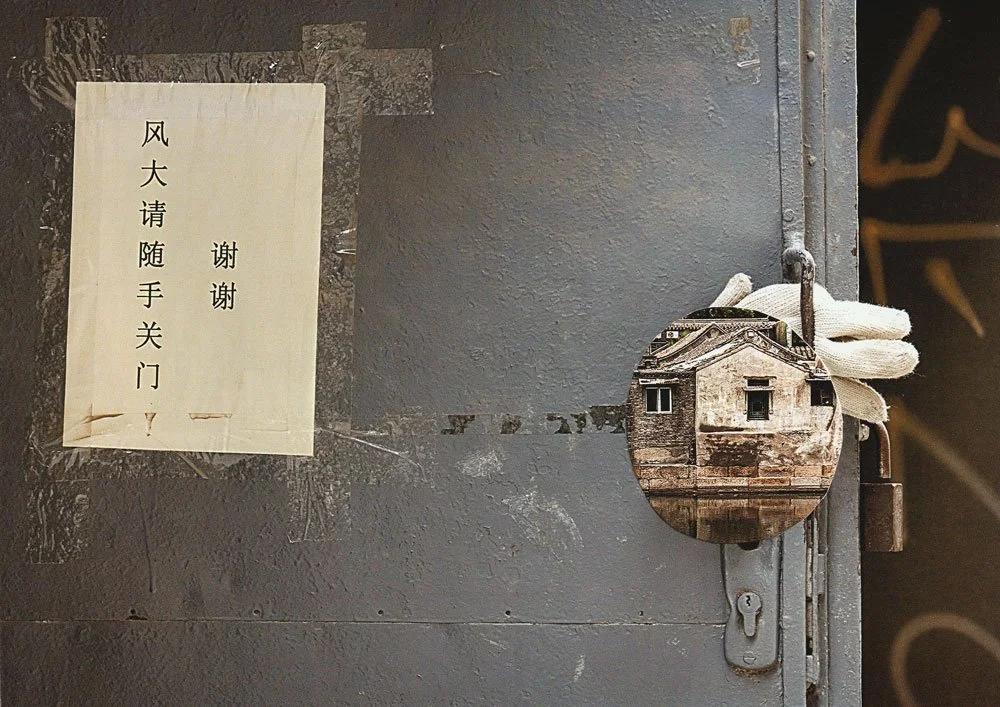 风大请随手关门
谢谢